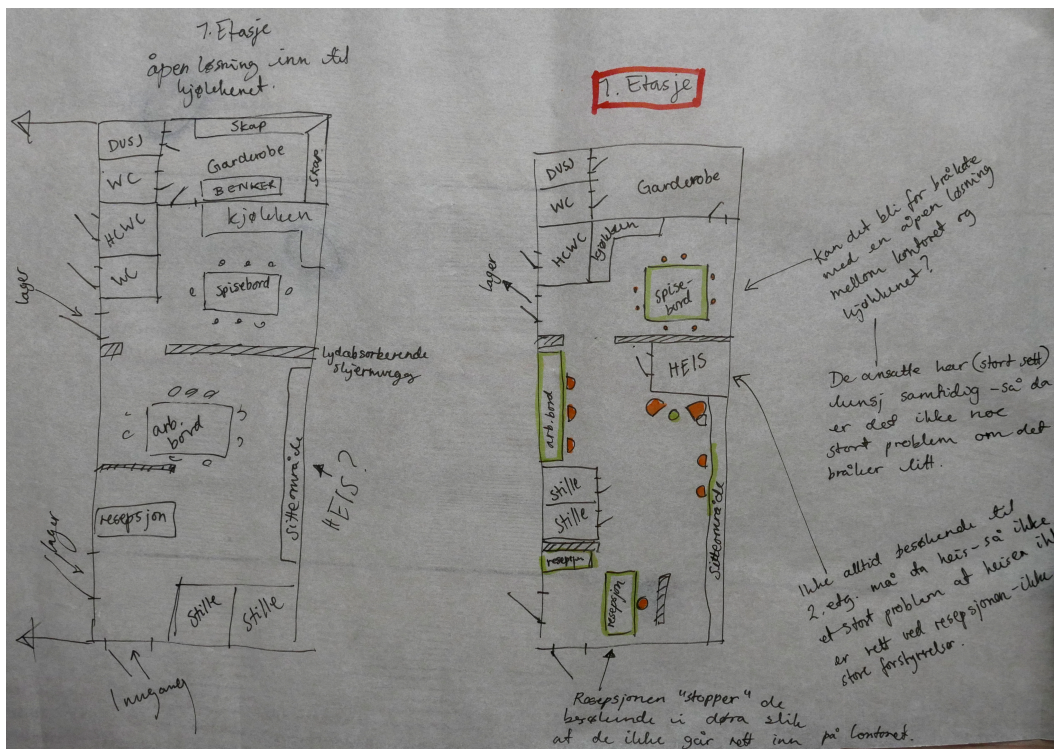 1. Etasje
åpen løsning inn til
kjøkkenet.
DUSJ
WC
HCWC
WC
Skap
Garderobe
BENKER
Skap
kjøkken
spisebord
lager
lydabsorberende
skjermvegg
arb.
bord
Sitteområde
HEIS?
resepsjon
lager
Stille
Stille
Inngang
1. Etasje
DUSJ
WC
HCWC
Garderobe
kjøkken
lager
spise-
bord
HEIS
arb.bord
Stille
Stille
resepsjon
Sitteområde
Kan det bli for bråkete
med en åpen løsning
mellom kontoret og
kjøkkenet?
De ansatte har (stort sett)
lunsj samtidig - så da
er det ikke noe
stort problem om det
bråker litt.
Ikke alltid besøkende til
2. etg. må da heis - så ikke
et stort problem at heisen ik
er rett ved resepsjonen - ikke
store forstyrrelser.
Resepsjonen "stopper" de
besøkende i døra slik
at de ikke går rett inn på kontoret.